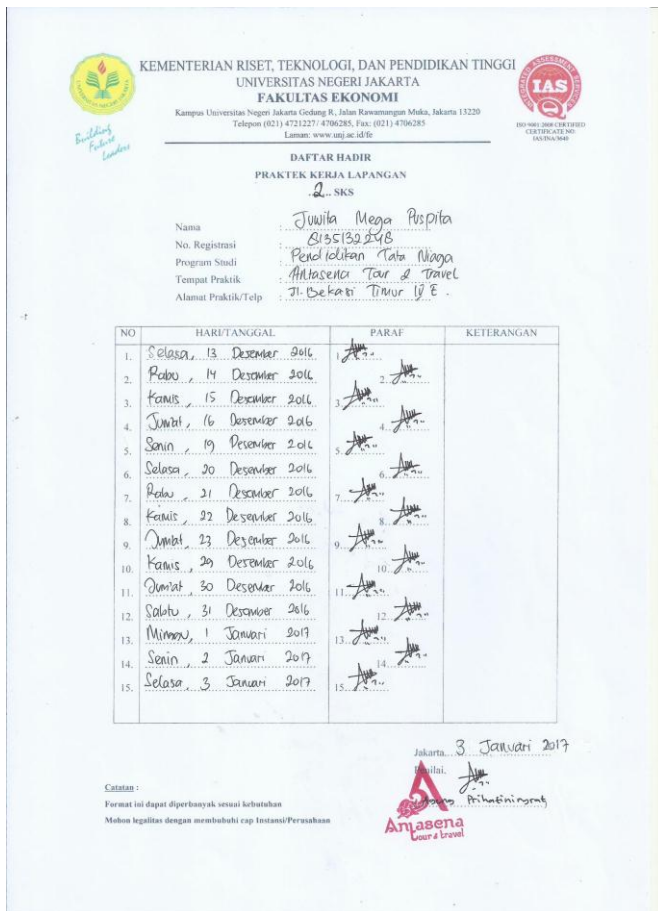 KEMENTERIAN RISET, TEKNOLOGI, DAN PENDIDIKAN TINGGI
UNIVERSITAS NEGERI JAKARTA
FAKULTAS EKONOMI
Kampus Universitas Negeri Jakarta Gedung R, Jalan Rawamangun Muka, Jakarta 13220
Telepon (021) 4721227/ 4706285, Fax: (021) 4706285
Laman: www.unj.ac.id/fe
Building
Future
Leaders
IAS
ISO 9001:2008 CERTIFIED
CERTIFICATE NO:
DAFTAR HADIR
PRAKTEK KERJA LAPANGAN
..2.. SKS
Nama : Juwita Mega Puspita
No. Registrasi : 8135132248
Program Studi : Pendidikan Tata Niaga
Tempat Praktik : Antasena Tour & Travel
Alamat Praktik/Telp : Jl. Bekasi Timur IV E.
NO HARI/TANGGAL PARAF KETERANGAN
1. Selasa, 13 Desember 2016 1.
2. Rabu, 14 Desember 2016 2.
3. Kamis, 15 Desember 2016 3.
4. Jum'at, 16 Desember 2016 4.
5. Senin, 19 Desember 2016 5.
6. Selasa, 20 Desember 2016 6.
7. Rabu, 21 Desember 2016 7.
8. Kamis, 22 Desember 2016 8.
9. Jum'at, 23 Desember 2016 9.
10. Kamis, 29 Desember 2016 10.
11. Jum'at, 30 Desember 2016 11.
12. Sabtu, 31 Desember 2016 12.
13. Minggu, 1 Januari 2017 13.
14. Senin, 2 Januari 2017 14.
15. Selasa, 3 Januari 2017 15.
Jakarta, 3 Januari 2017
Penilai,
Prihatiningrat
Antasena
tour & travel
Catatan :
Format ini dapat diperbanyak sesuai kebutuhan
Mohon legalitas dengan membubuhi cap Instansi/Perusahaan